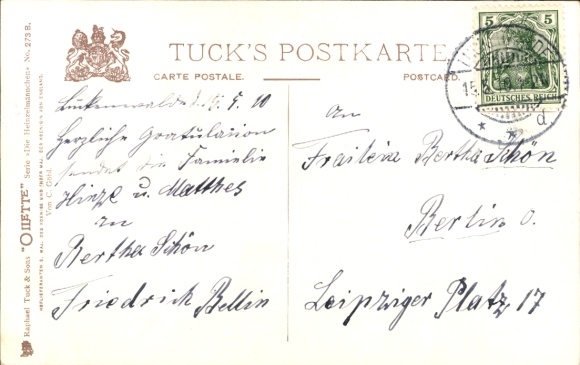 TUCK'S POSTKARTE
CARTE POSTALE.
POSTCARD.
Raphael Tuck & Sons "OILETTE" Serie «Die Heinzelmännchen» No. 273 B.
Von C. Göbl.
5 5
DEUTSCHES REICH
15.
d
Luckenwalde d. 15. 5. 10
Herzliche Gratulation
sendet die Familie
Hinze u. Matthes
an
Bertha Schön
Friedrich Bellin
an
Fraülein Bertha Schön
Berlin O.
Leipziger Platz, 17